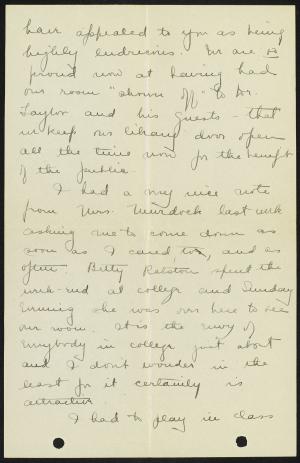 hair appealed to you as being
highly ludicrous. We are so
proud now at having had
our room "shown off" to Dr.
Taylor and his guests - that
we keep our library door open
all the time now for the benefit
of the public.
I had a very nice note
from Mrs. Murdock last week
asking me to come down as
soon as I cared to, and as
often. Betty Ralston spent the
week-end at college and Sunday
Evening she was over here to see
our room. It is the envy of
Everybody in college just about
and I don't wonder in the
least for it certainly is
attractive.
I had to play in class